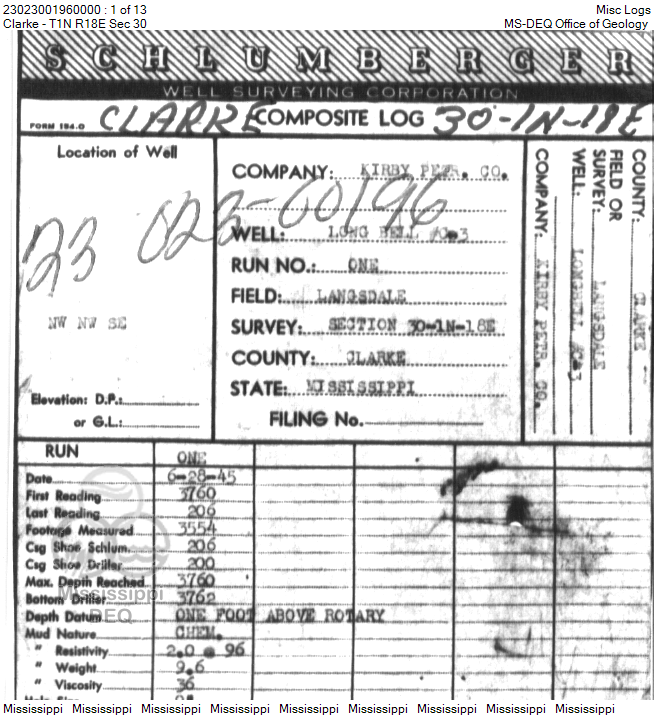 23023001960000 : 1 of 13 Misc Logs
Clarke - T1N R18E Sec 30 MS-DEQ Office of Geology
SCHLUMBERGER
WELL SURVEYING CORPORATION
FORM 184.0 CLARKE COMPOSITE LOG 30-1N-18E
Location of Well
23 023-00196
NW NW SE
Elevation: D.F.:
or G.L.:
COMPANY: KIRBY PETR. CO.
WELL: LONG BELL #C-3
RUN NO.: ONE
FIELD: LANGSDALE
SURVEY: SECTION 30-1N-18E
COUNTY: CLARKE
STATE: MISSISSIPPI
FILING No.
COUNTY: CLARKE
FIELD OR
SURVEY: LANGSDALE
WELL: LONGBELL #C-3
COMPANY: KIRBY PETR. CO.
RUN ONE
Date 6-28-45
First Reading 3760
Last Reading 206
Footage Measured 3554
Csg Shoe Schlum. 206
Csg Shoe Driller 200
Max. Depth Reached 3760
Bottom Driller 3762
Depth Datum ONE FOOT ABOVE ROTARY
Mud Nature CHEM.
" Resistivity 2.0 @ 96
" Weight 9.6
" Viscosity 36
Mississippi
DEQ
Mississippi Mississippi Mississippi Mississippi Mississippi Mississippi Mississippi Mississippi Mississippi